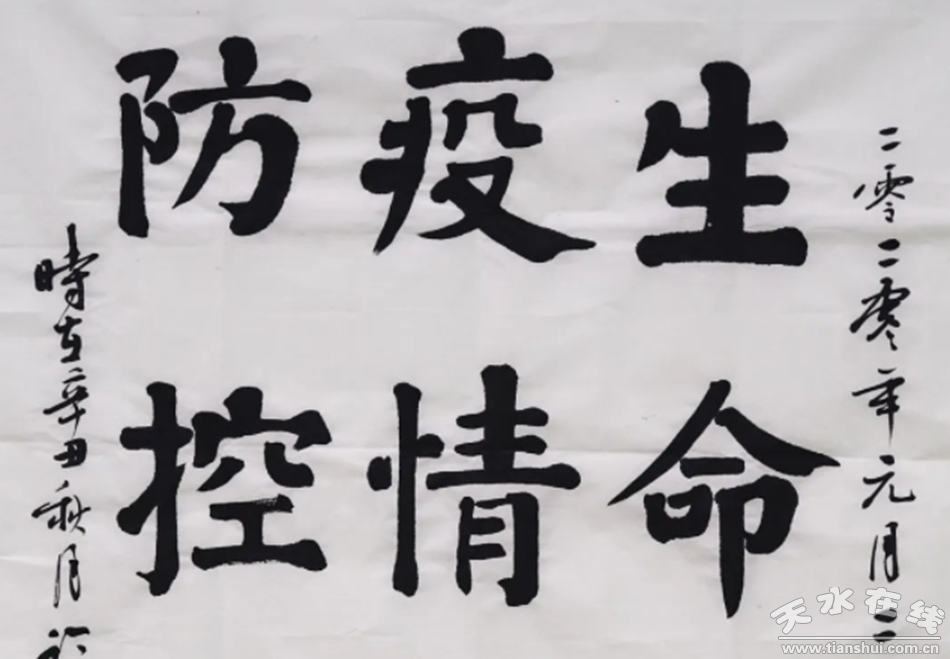 二零二零年元月二
生命
疫情
防控
時在辛丑秋月於
天水在线
www.tianshui.com.cn